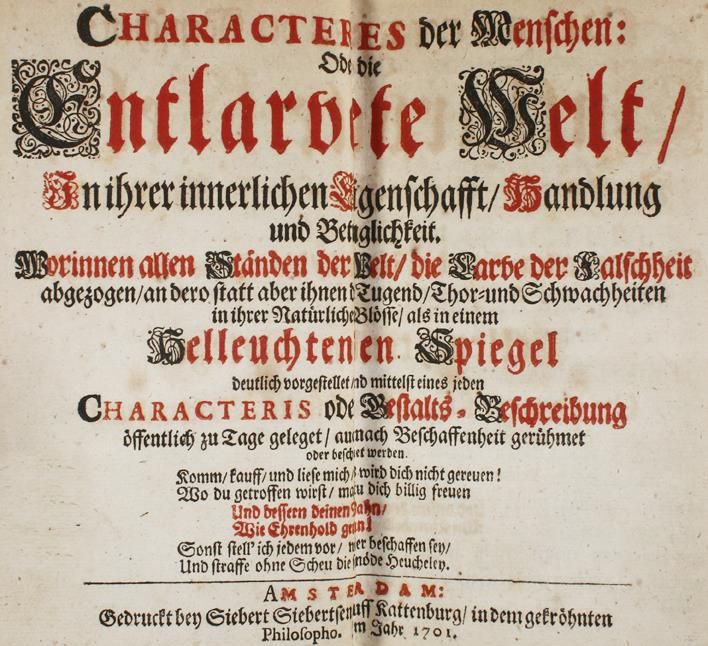 CHARACTERES der Menschen:
Ode die
Entlarvete Welt /
In ihrer innerlichen Egenschafft / Handlung
und Betriglichkeit.
Worinnen allen Ständen der Welt / die Larve der Falschheit
abgezogen / an dero statt aber ihnen Tugend / Thor- und Schwachheiten
in ihrer Natürliche Blösse / als in einem
Helleuchtenden Spiegel
deutlich vorgestellet / nd mittelst eines jeden
CHARACTERIS ode Gestalts-Beschreibung
öffentlich zu Tage geleget / nach Beschaffenheit gerühmet
oder werden.
Komm / kauff / und liese mich / wird dich nicht gereuen!
Wo du getroffen wirst / dich billig freuen
Und bessern deinen Wahn /
Wie Ehrenhold
Sonst stell' ich jedem vor / wer beschaffen sey /
Und straffe ohne Scheu die schnöde Heucheley.
AMSTERDAM:
Gedruckt bey Siebert Siebertsen uff Kattenburg / in dem gekröhnten
Philosopho. m Jahr 1701.